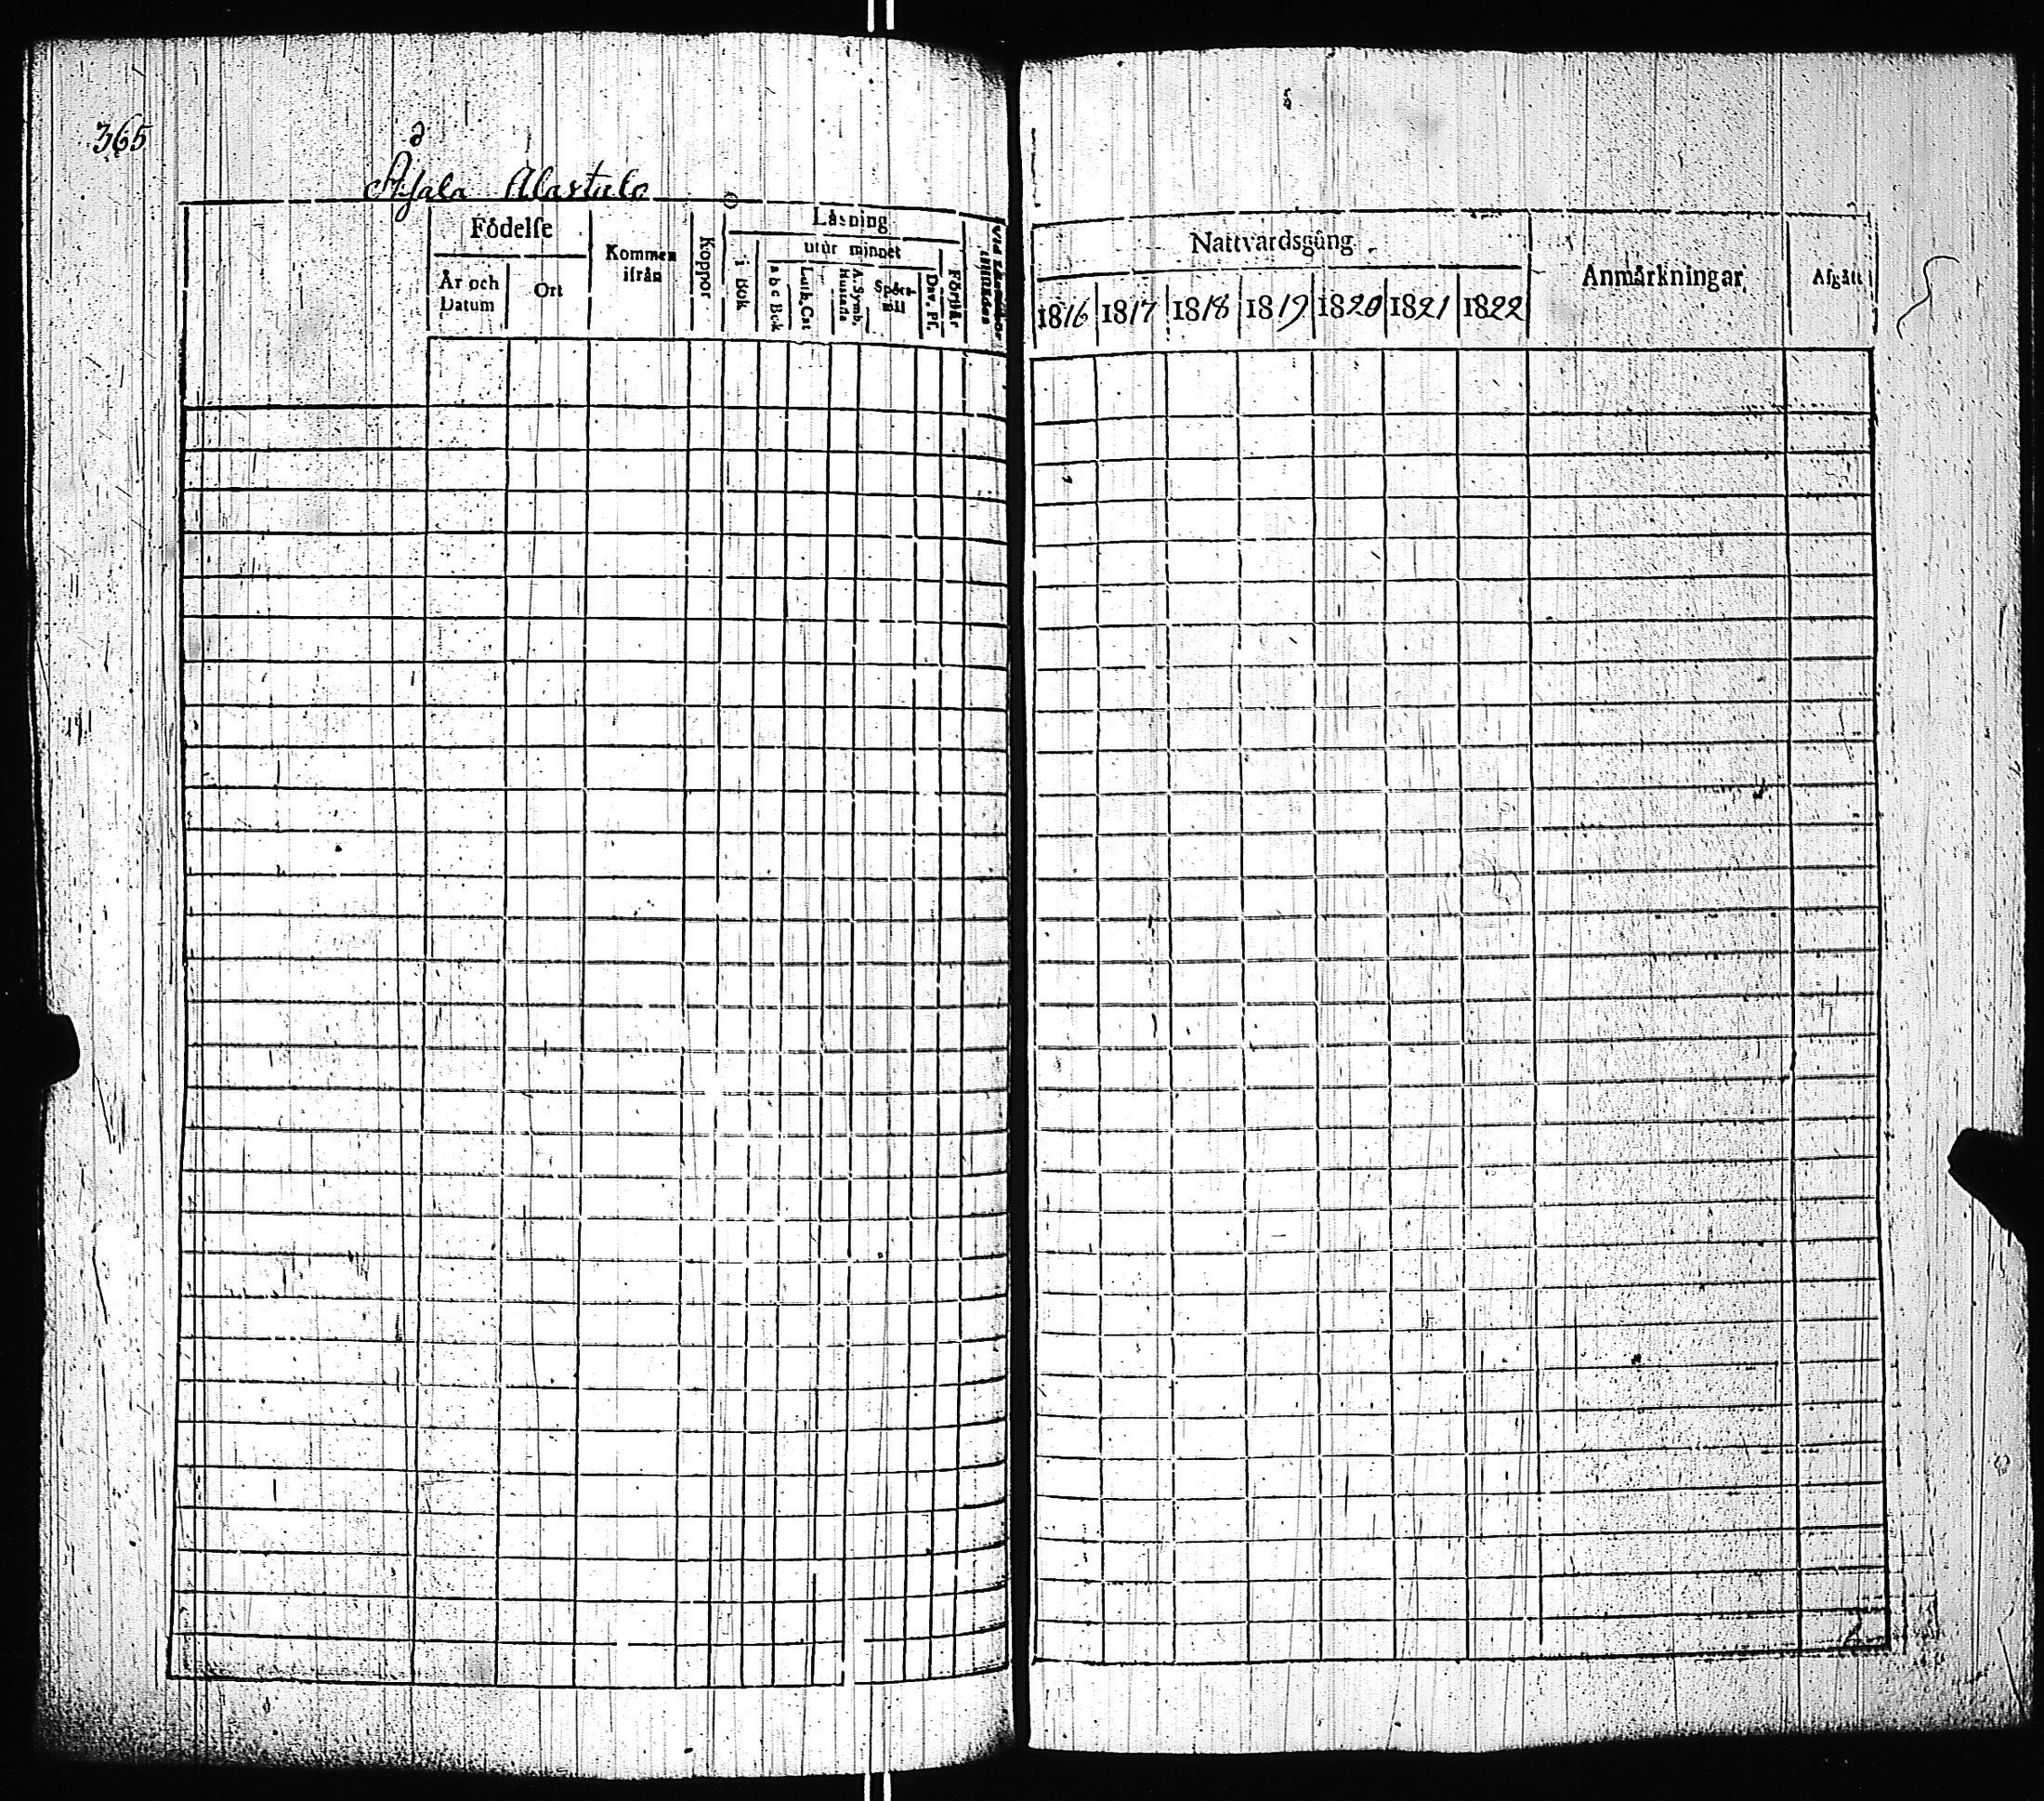 365
Åjala Alastalo
Födelse
År och Datum
Ort
Kommen ifrån
Koppor
Läsning
i Bok
utur minnet
a b c Bok
Luth. Cat
A. Symb. Hustafla
Spörsmål
Dav. Ps.
Förstår
Nattvardsgång
1816 1817 1818 1819 1820 1821 1822
Anmärkningar
Afgått